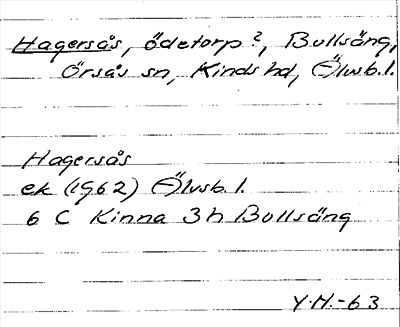 Hagersås, ödetorp?, Bullsäng,
Örsås sn, Kinds hd, Älvsb. l.
Hagersås
ek (1962) Älvsb. l.
6 C Kinna 3h Bullsäng
Y.H.-63